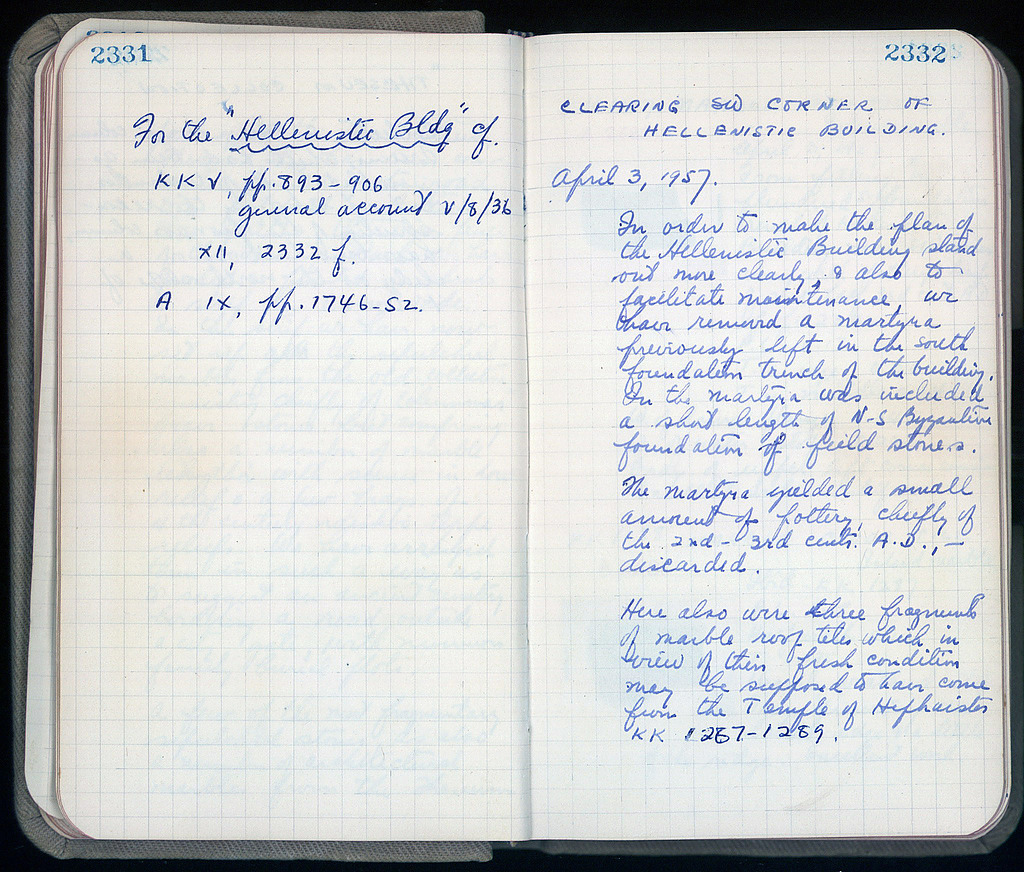 2331
For the "Hellenistic Bldg" cf.
KK V, pp. 893-906
general account V/8/36
XII, 2332 f.
A IX, pp. 1746-52.
2332
CLEARING SW CORNER OF
HELLENISTIC BUILDING.
April 3, 1957.
In order to make the plan of
the Hellenistic Building stand
out more clearly, & also to
facilitate maintenance, we
have removed a martyra
previously left in the south
foundation trench of the building.
In the martyra was included
a short length of N-S Byzantine
foundation of field stones.
The martyra yielded a small
amount of pottery, chiefly of
the 2nd - 3rd cents. A.D., —
discarded.
Here also were three fragments
of marble roof tiles which in
view of their fresh condition
may be supposed to have come
from the Temple of Hephaistos
KK 1287-1289.